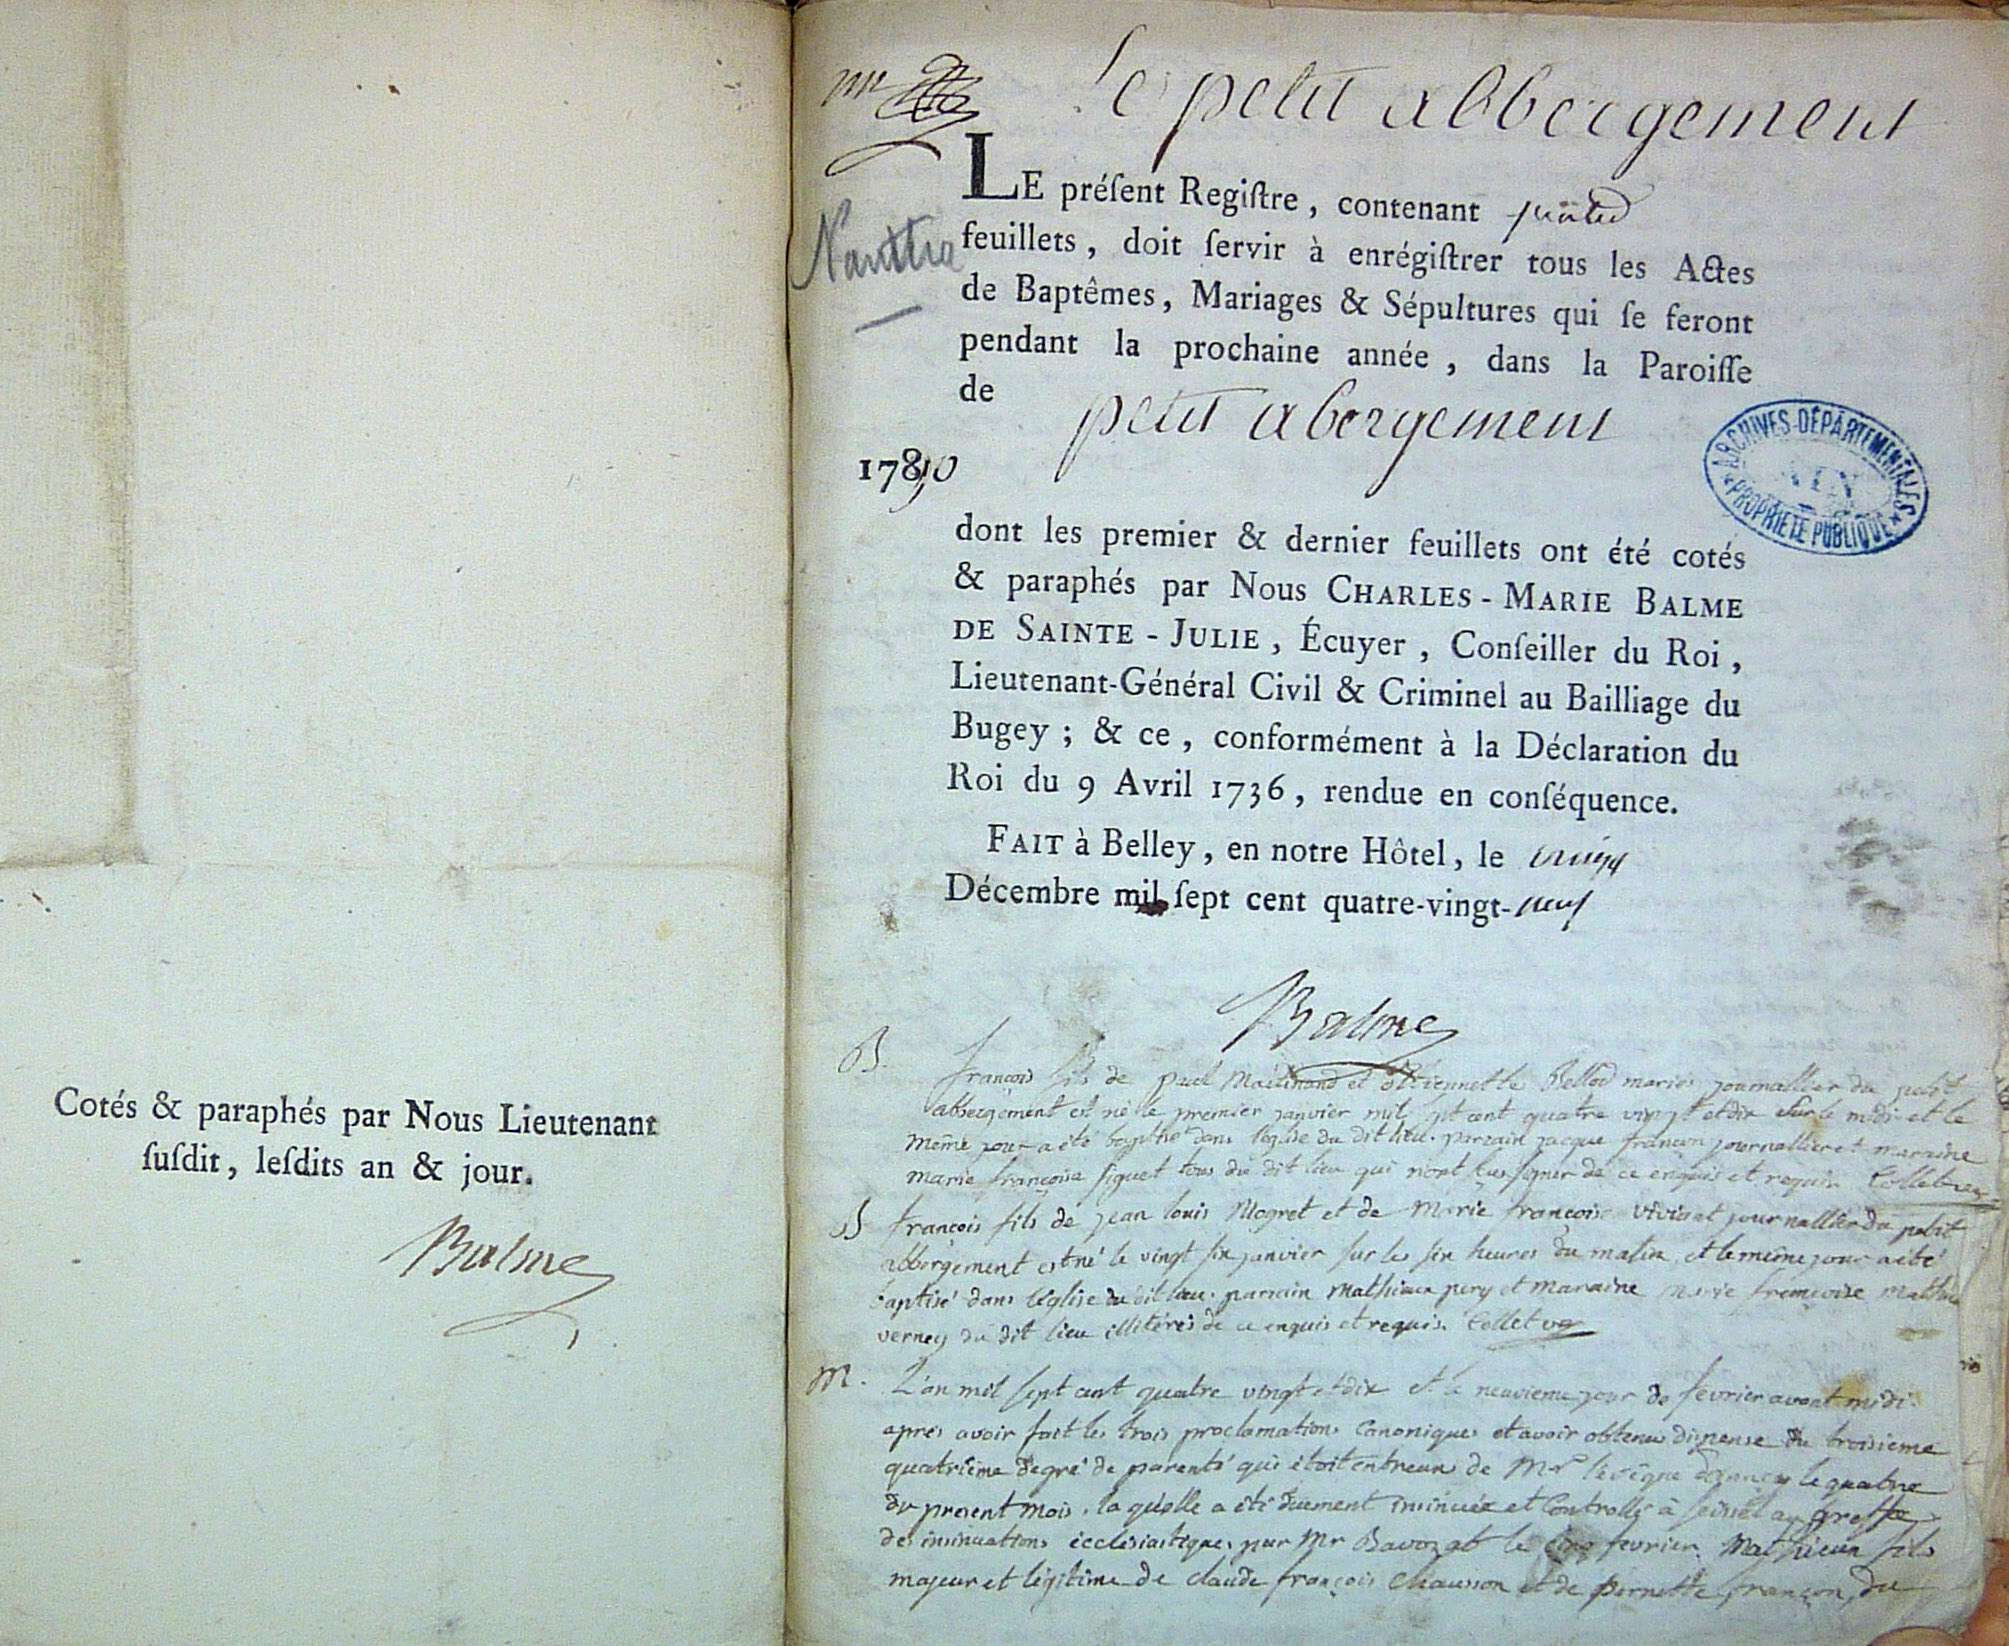 Cotés & paraphés par Nous Lieutenant
ſuſdit, leſdits an & jour.
Balme
le petit abbergement
LE préſent Regiſtre, contenant
feuillets, doit ſervir à enrégiſtrer tous les Actes
de Baptêmes, Mariages & Sépultures qui ſe feront
pendant la prochaine année, dans la Paroiſſe
de petit abergement
1790
ARCHIVES DÉPARTEMENTALES
AIN
PROPRIÉTÉ PUBLIQUE
dont les premier & dernier feuillets ont été cotés
& paraphés par Nous CHARLES-MARIE BALME
DE SAINTE-JULIE, Écuyer, Conſeiller du Roi,
Lieutenant-Général Civil & Criminel au Bailliage du
Bugey; & ce, conformément à la Déclaration du
Roi du 9 Avril 1736, rendue en conſéquence.
FAIT à Belley, en notre Hôtel, le vingt
Décembre mil ſept cent quatre-vingt-neuf
Balme
B. françois fils de et mariés journallier du petit
abbergement est né le premier janvier mil sept cent quatre vingt et dix sur le midi et le
même jour a été baptisé dans l'eglise du dit lieu. parrain jacque françon journallier et maraine
marie françoise tous du dit lieu qui n'ont sçu signer de ce enquis et requis Collet
B françois fils de jean louis et de Marie françoise journallier du petit
abbergement est né le vingt six janvier sur les six heures du matin et le même jour a été
baptisé dans l'église du dit lieu. parrain Mathieux pery et Maraine Marie françoise
verney du dit lieu illitérés de ce enquis et requis. Collet
M. L'an mil sept cent quatre vingt et dix et le neuvieme jour de fevrier avant midi.
après avoir fait les trois proclamations Canoniques et avoir obtenu dispense du troisieme
quatrième degré de parenté qui étoit entreux de Mgr l'évêque d'annecy le quatre
du present mois. la quelle a été duement insinuée et Controllé à seissel au greffe
des insinuations écclésiastiques par Mr le cinq fevrier. Mathieux fils
majeur et légitime de claude françois chausson et de pernette françon, du